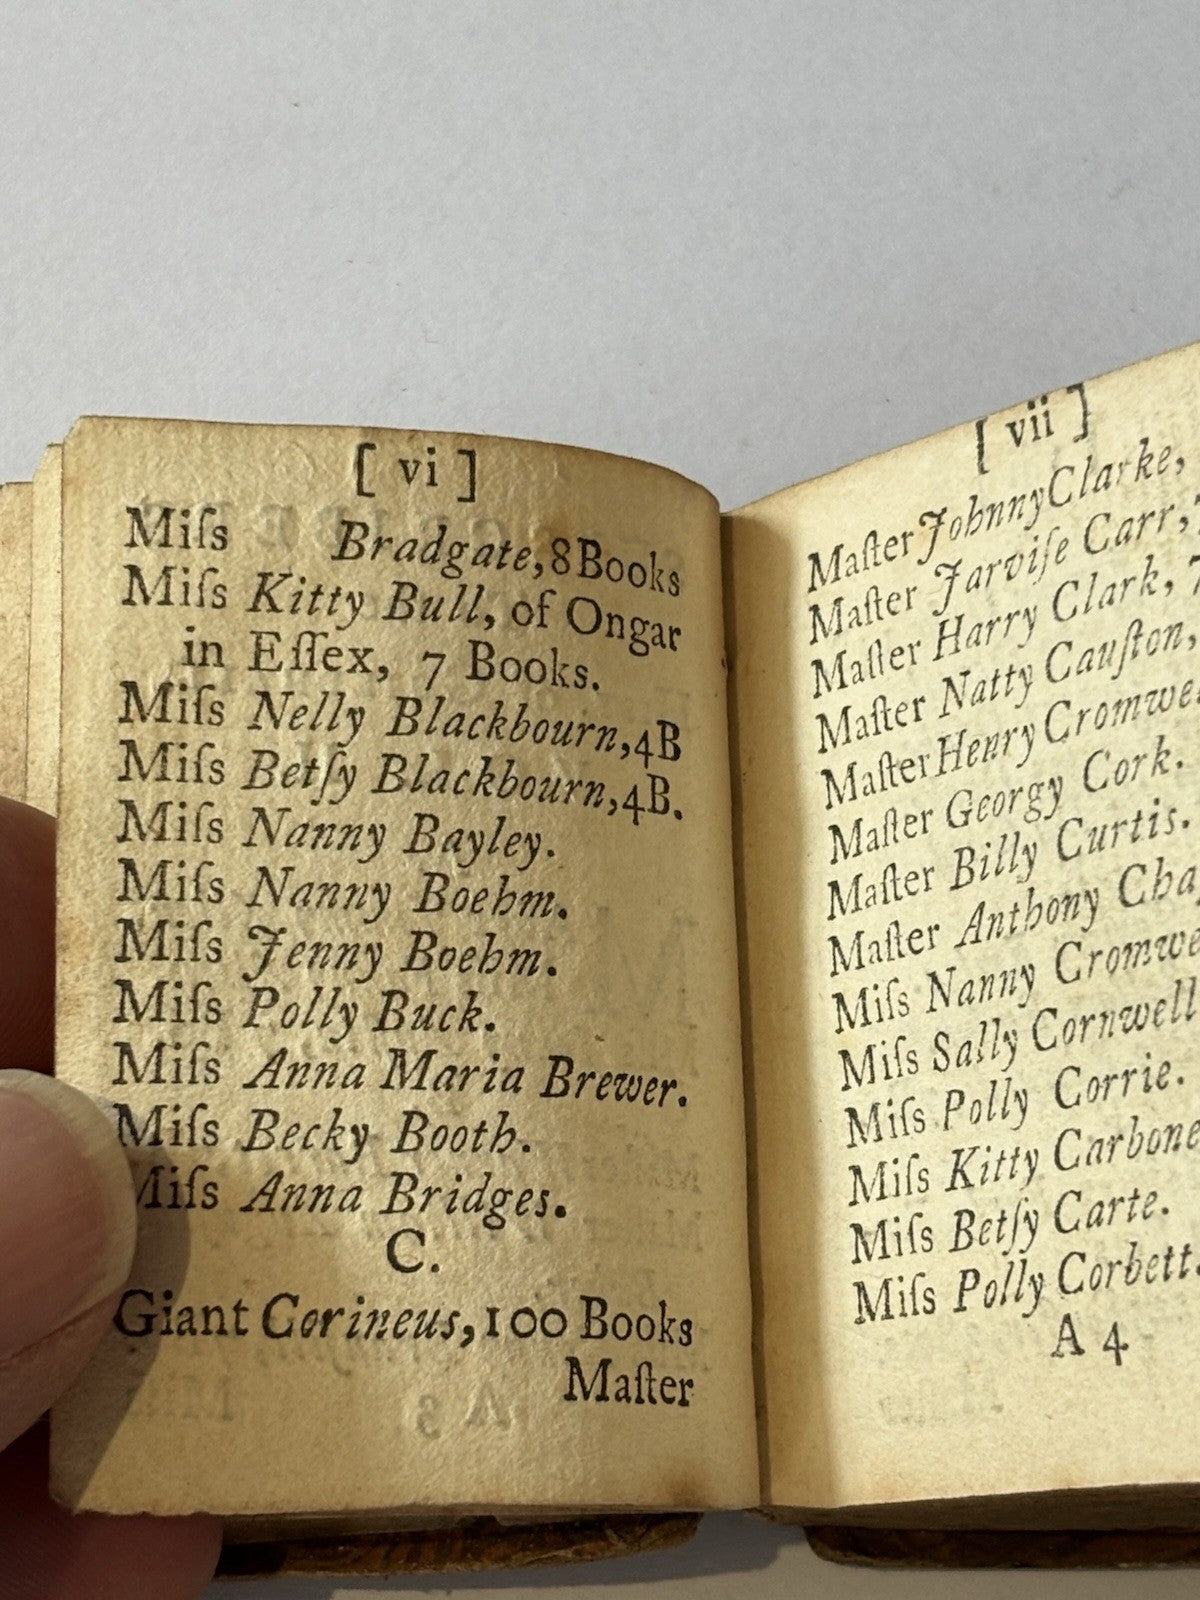 [ vi ]
Miſs Bradgate, 8 Books
Miſs Kitty Bull, of Ongar
in Eſſex, 7 Books.
Miſs Nelly Blackbourn, 4B
Miſs Betſy Blackbourn, 4B.
Miſs Nanny Bayley.
Miſs Nanny Boehm.
Miſs Jenny Boehm.
Miſs Polly Buck.
Miſs Anna Maria Brewer.
Miſs Becky Booth.
Miſs Anna Bridges.
C.
Giant Corineus, 100 Books
Maſter
[ vii ]
Maſter Johnny Clarke,
Maſter Jarviſe Carr,
Maſter Harry Clark, 7
Maſter Natty Cauſton,
Maſter Henry
Maſter Georgy Cork.
Maſter Billy Curtis.
Maſter Anthony
Miſs Nanny
Miſs Sally Cornwell
Miſs Polly Corrie.
Miſs Kitty Carbone
Miſs Betſy Carte.
Miſs Polly Corbett.
A 4